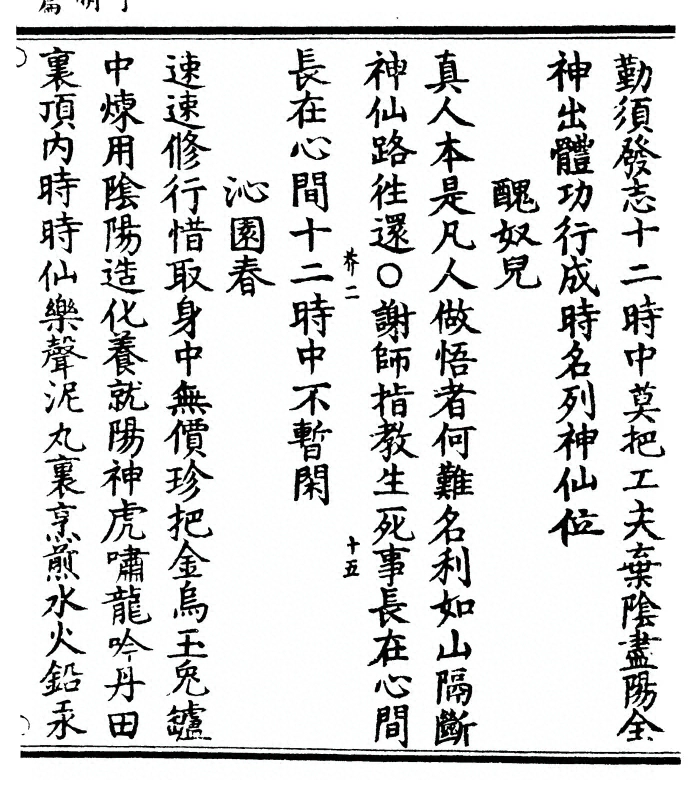 勤須發志十二時中莫把工夫棄陰盡陽全
神出體功行成時名列神仙位
醜奴兒
真人本是凡人做悟者何難名利如山隔斷
神仙路徃還○謝師指教生死事長在心間
芥二
十五
長在心間十二時中不暫閑
沁園春
速速修行惜取身中無價珍把金烏玉兔鑪
中煉用陰陽造化養就陽神虎嘯龍吟丹田
裏頂内時時仙樂聲泥丸裏烹煎水火鉛汞